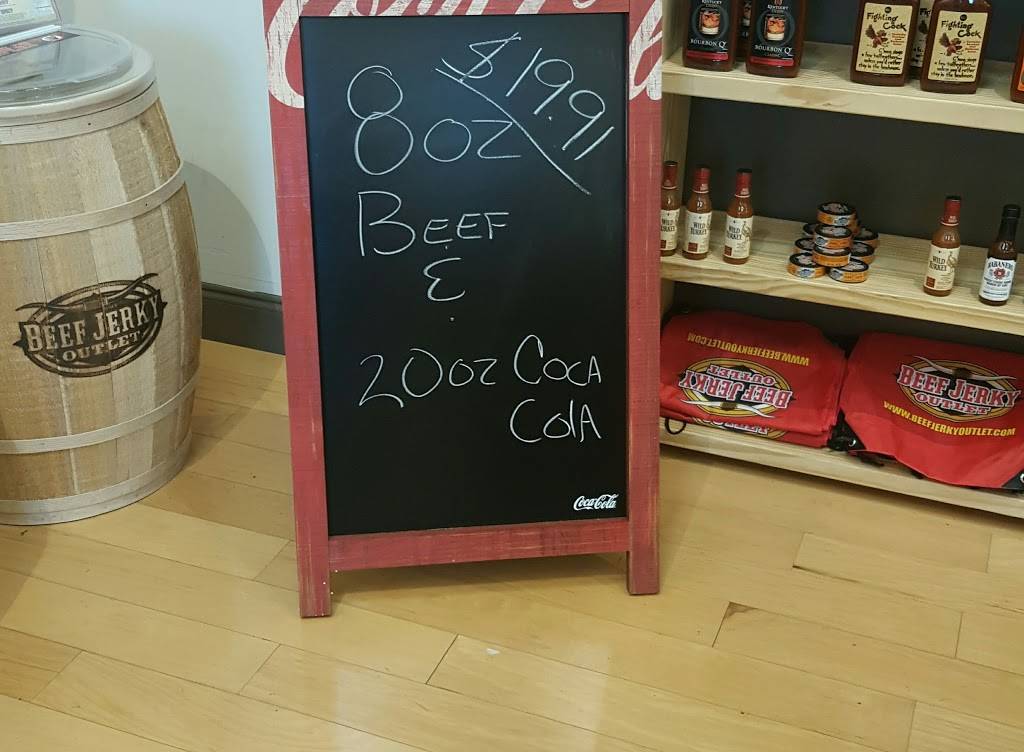 $19.91
8oz
BEEF
&
20oz COCA
COlA
Coca-Cola
BEEF JERKY
OUTLET
KENTUCKY
BOURBON Q
KENTUCKY
BOURBON Q
Fighting
Cock
Fighting
Cock
WILD
TURKEY
WILD
TURKEY
WILD
TURKEY
WILD
TURKEY
HABANERO
WWW.BEEFJERKYOUTLET.COM
BEEF JERKY
OUTLET
BEEF JERKY
OUTLET
WWW.BEEFJERKYOUTLET.COM